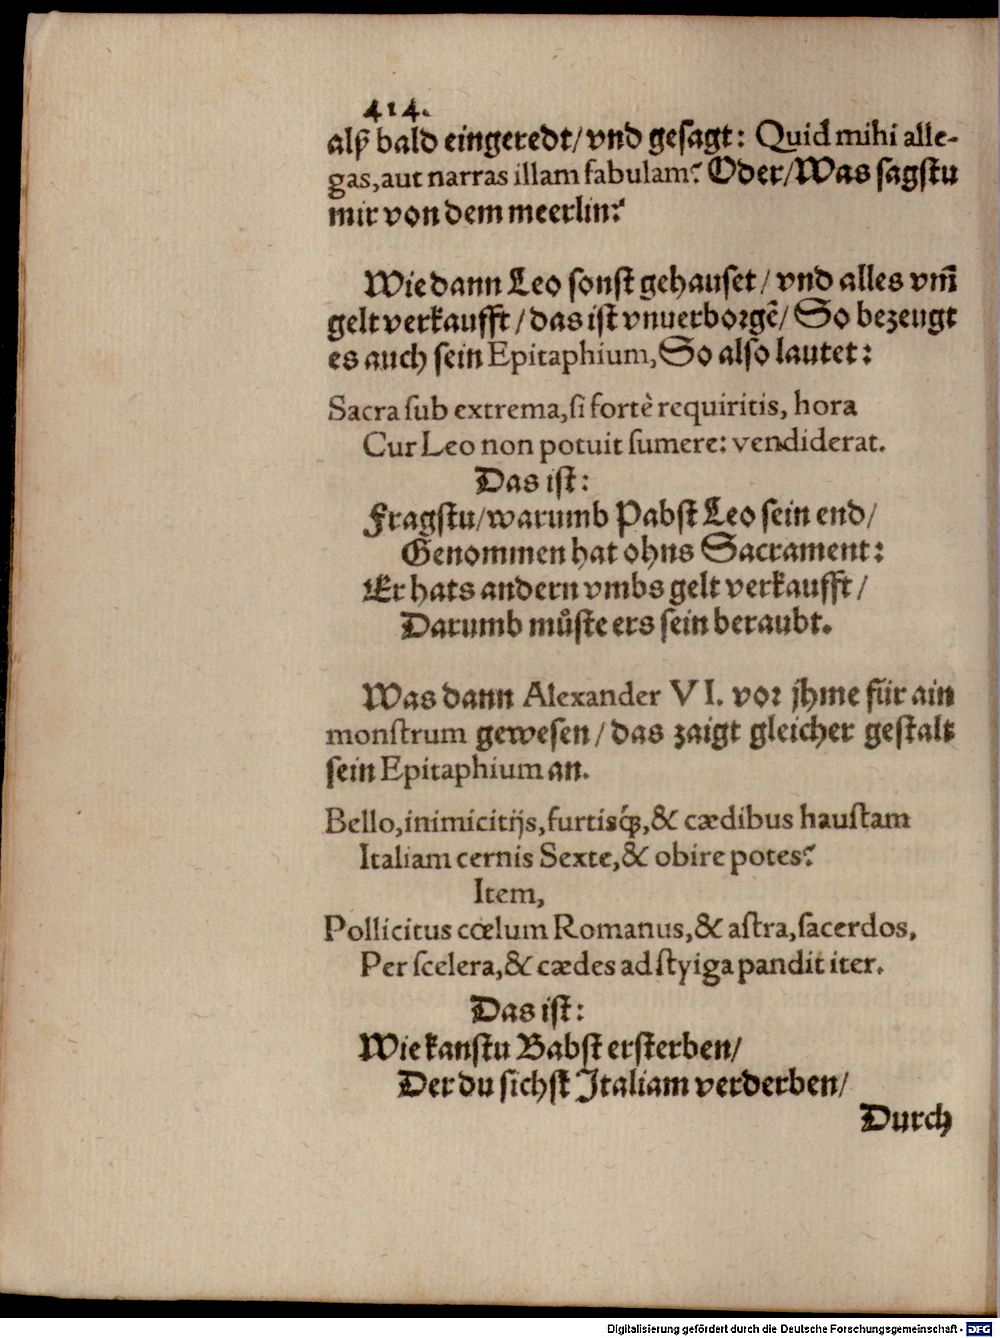 414.
alß bald eingeredt/ vnd gesagt: Quid mihi alle-
gas, aut narras illam fabulam? Oder/ Was sagstu
mir von dem meerlin?
Wie dann Leo sonst gehauset/ vnd alles vm̃
gelt verkaufft/ das ist vnuerborgẽ/ So bezeugt
es auch sein Epitaphium, So also lautet:
Sacra ſub extrema, ſi fortè requiritis, hora
Cur Leo non potuit ſumere: vendiderat.
Das ist:
Fragstu/ warumb Pabst Leo sein end/
Genommen hat ohns Sacrament:
Er hats andern vmbs gelt verkaufft/
Darumb můste ers sein beraubt.
Was dann Alexander VI. vor jhme für ain
monſtrum gewesen/ das zaigt gleicher gestalt
sein Epitaphium an.
Bello, inimicitijs, furtisq́;, & cædibus hauſtam
Italiam cernis Sexte, & obire potes?
Item,
Pollicitus cœlum Romanus, & aſtra, ſacerdos,
Per ſcelera, & cædes ad ſtyiga pandit iter.
Das ist:
Wie kanstu Babst ersterben/
Der du sichst Italiam verderben/
Durch
Digitalisierung gefördert durch die Deutsche Forschungsgemeinschaft - DFG